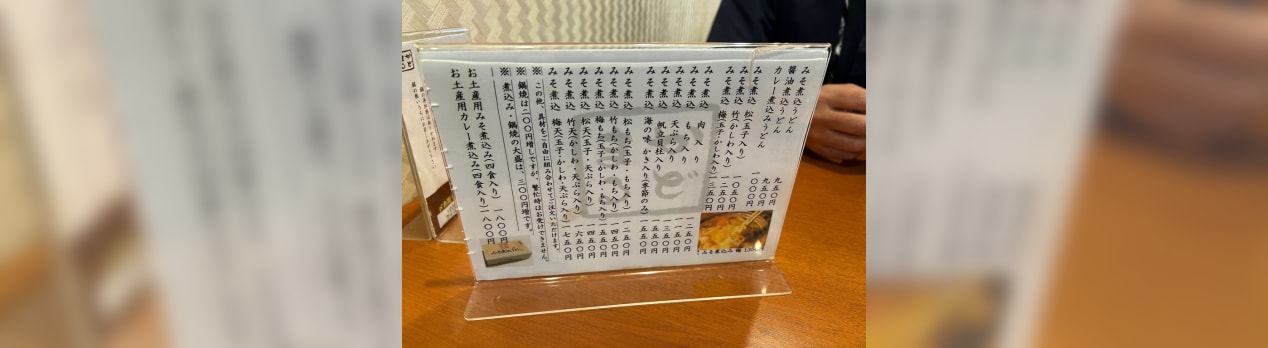 みそ煮込うどん 九五〇円
醤油煮込うどん 九五〇円
カレー煮込みうどん 一〇〇〇円
みそ煮込 松(玉子入り) 一〇五〇円
みそ煮込 竹(かしわ入り) 一二五〇円
みそ煮込 梅(玉子・かしわ入り) 一三五〇円
みそ煮込 肉入り 一二五〇円
みそ煮込 もち入り 一一五〇円
みそ煮込 天ぷら入り 一三五〇円
みそ煮込 帆立貝柱入り 一五五〇円
みそ煮込 海の味 かき入り(季節のみ) 一五五〇円
みそ煮込 松もち(玉子・もち入り) 一二五〇円
みそ煮込 竹もち(かしわ・もち入り) 一四五〇円
みそ煮込 梅もち(玉子・かしわ・もち入り) 一五五〇円
みそ煮込 松天(玉子・天ぷら入り) 一四五〇円
みそ煮込 竹天(かしわ・天ぷら入り) 一六五〇円
みそ煮込 梅天(玉子・かしわ・天ぷら入り) 一七五〇円
※この他、具材をご自由に組み合わせてご注文いただけます。
※鍋焼は二〇〇円増しですが、繁忙時はお受けできません。
※煮込み・鍋焼の大盛は、三〇〇円増です。
お土産用みそ煮込み(四食入り) 一八〇〇円
お土産用カレー煮込み(四食入り) 一八〇〇円
みそ煮込み 梅